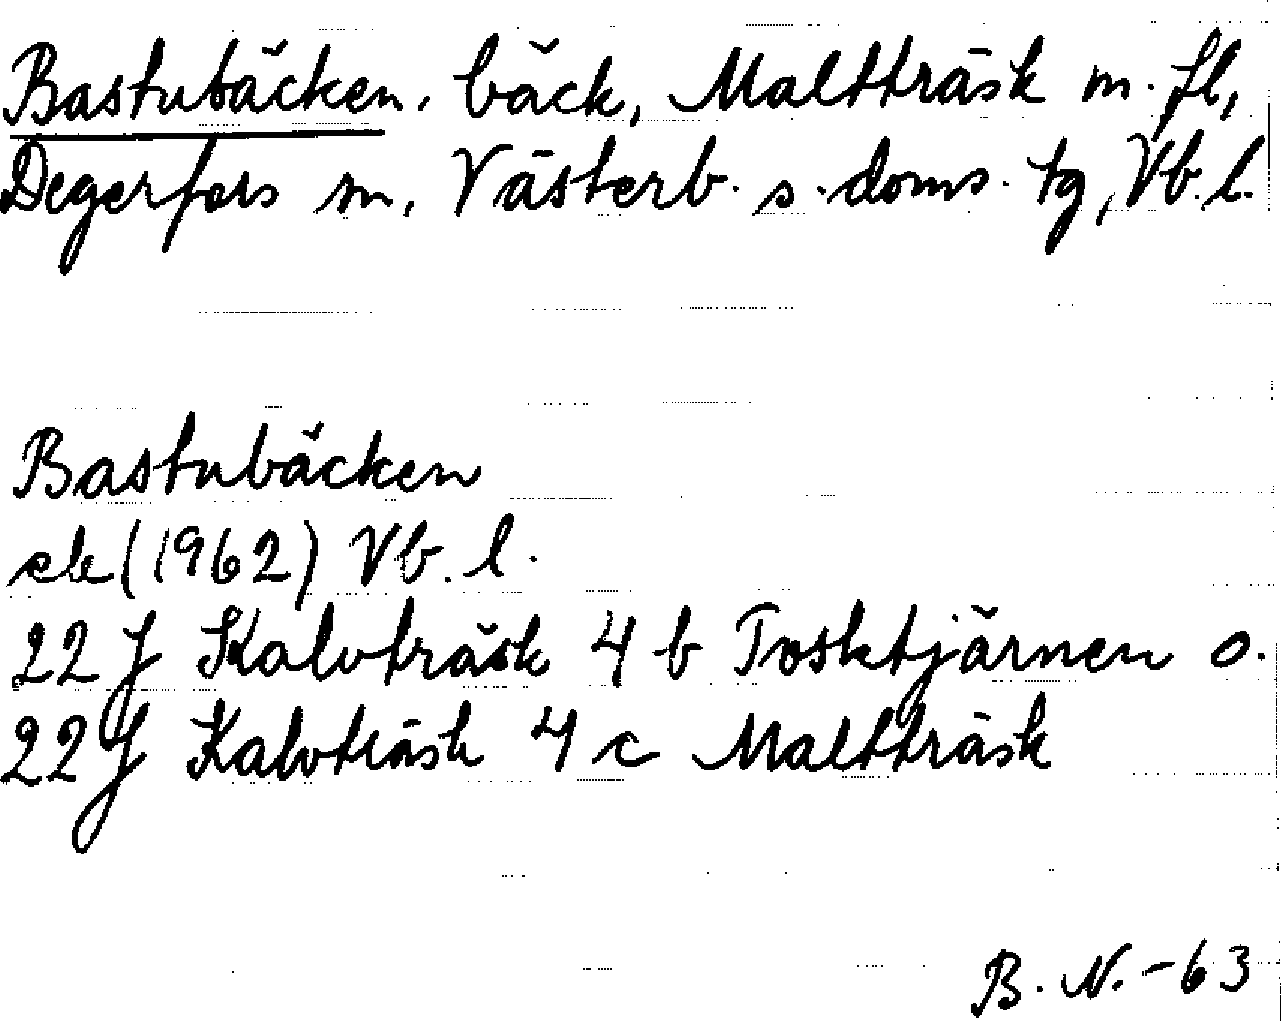 Bastubäcken, bäck, Maltträsk m. fl,
Degerfors sn, Västerb. s. doms. tg, Vb. l.
Bastubäcken
ek (1962) Vb. l.
22 J Kalvträsk 4 b Tosktjärnen o.
22 J Kalvträsk 4 c Maltträsk
B. N. -63